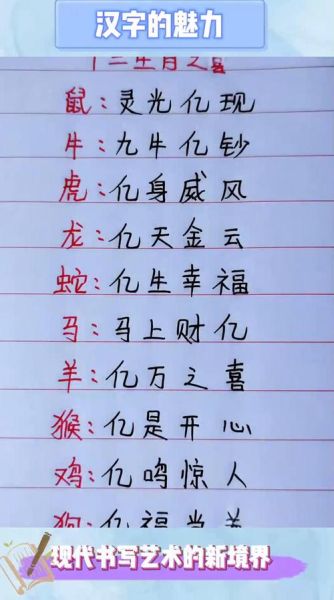 汉字的魅力
十二生肖之喜
鼠:灵光亿现
牛:九牛亿钞
虎:亿身威风
龙:亿天金云
蛇:亿生幸福
马:马上财亿
羊:亿万之喜
猴:亿是开心
鸡:亿鸣惊人
狗:亿福当关
现代书写艺术的新境界